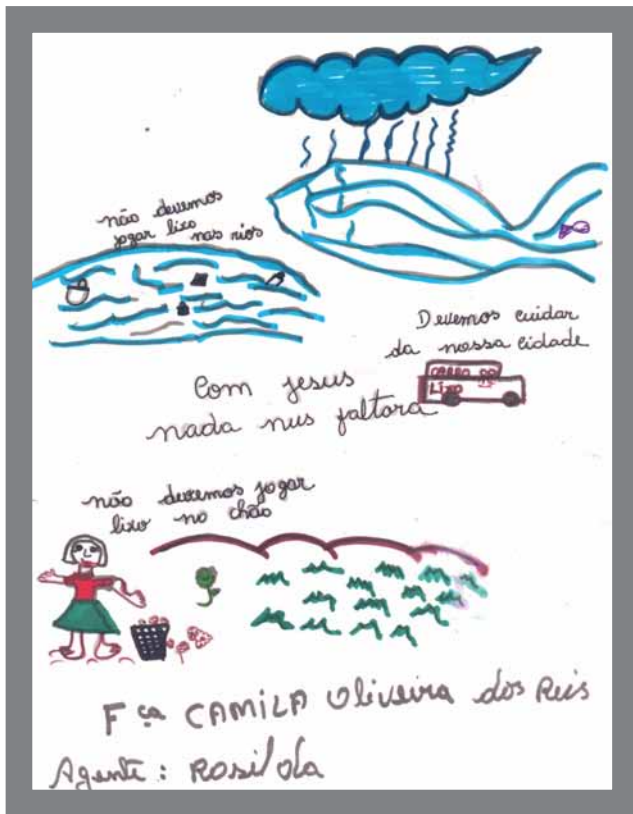 não devemos
jogar lixo
nas rios
Devemos cuidar
da nossa cidade
CARRO DO
LIXO
Com jesus
nada nus faltara
não devemos jogar
lixo no chão
Fça CAMILA Oliveira dos Reis
Agente: Rosilda